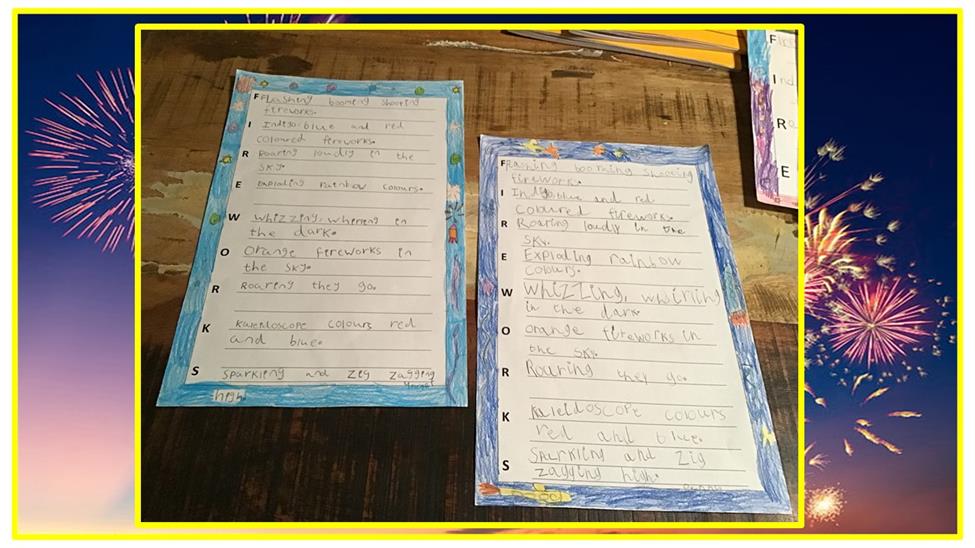 F Flashing booming shooting
fireworks.
I Indigo blue and red
coloured fireworks.
R Roaring loudly in the
sky.
E exploding rainbow colours.
W Whizzing, whirring in
the dark.
O Orange fireworks in
the sky.
R Roaring they go.
K Kaleidoscope colours red
and blue.
S Sparkling and zig zagging
high
F Flashing booming shooting
fireworks.
I Indigo blue and red
coloured fireworks.
R Roaring loudly in the
sky.
E Exploding rainbow
colours.
W Whizzing, whirring
in the dark
O orange fireworks in
the sky.
R Roaring they go.
K Kaleidoscope colours
red and blue.
S Sparkling and zig
zagging high.
F
I Ind
R
E